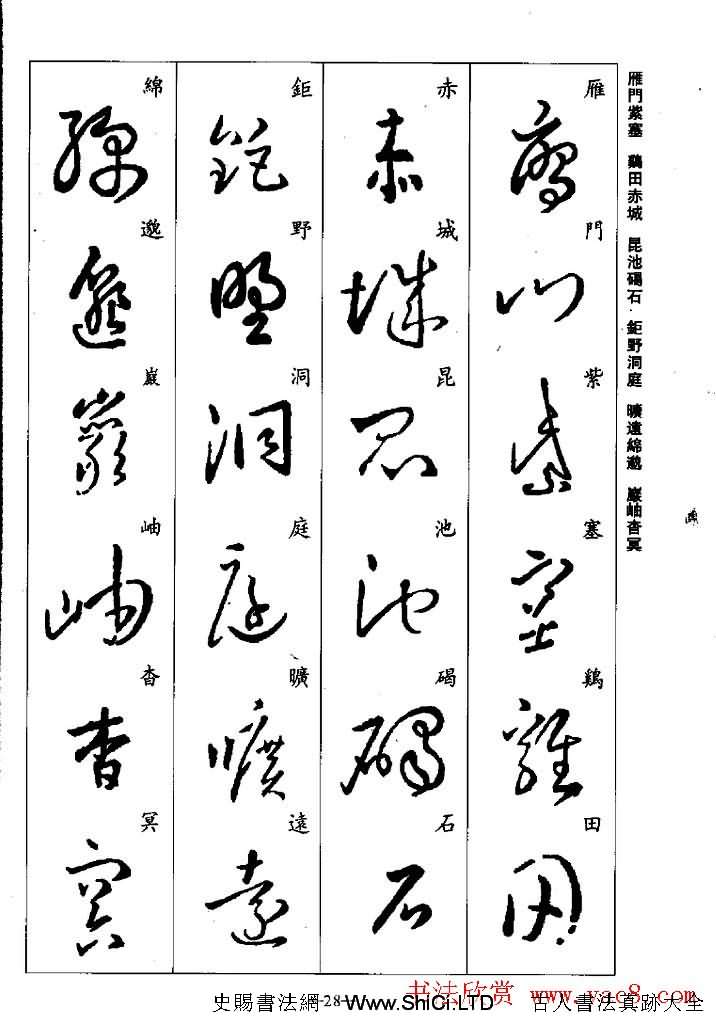 雁門紫塞 鷄田赤城 昆池碣石 · 鉅野洞庭 曠遠綿邈 巖岫杳冥
雁門紫塞鷄田
赤城昆池碣石
鉅野洞庭曠遠
綿邈巖岫杳冥
-28-
书法欣赏 www.yac8.com
史賜書法網——Www.ShiCi.LTD 古人書法真跡大全